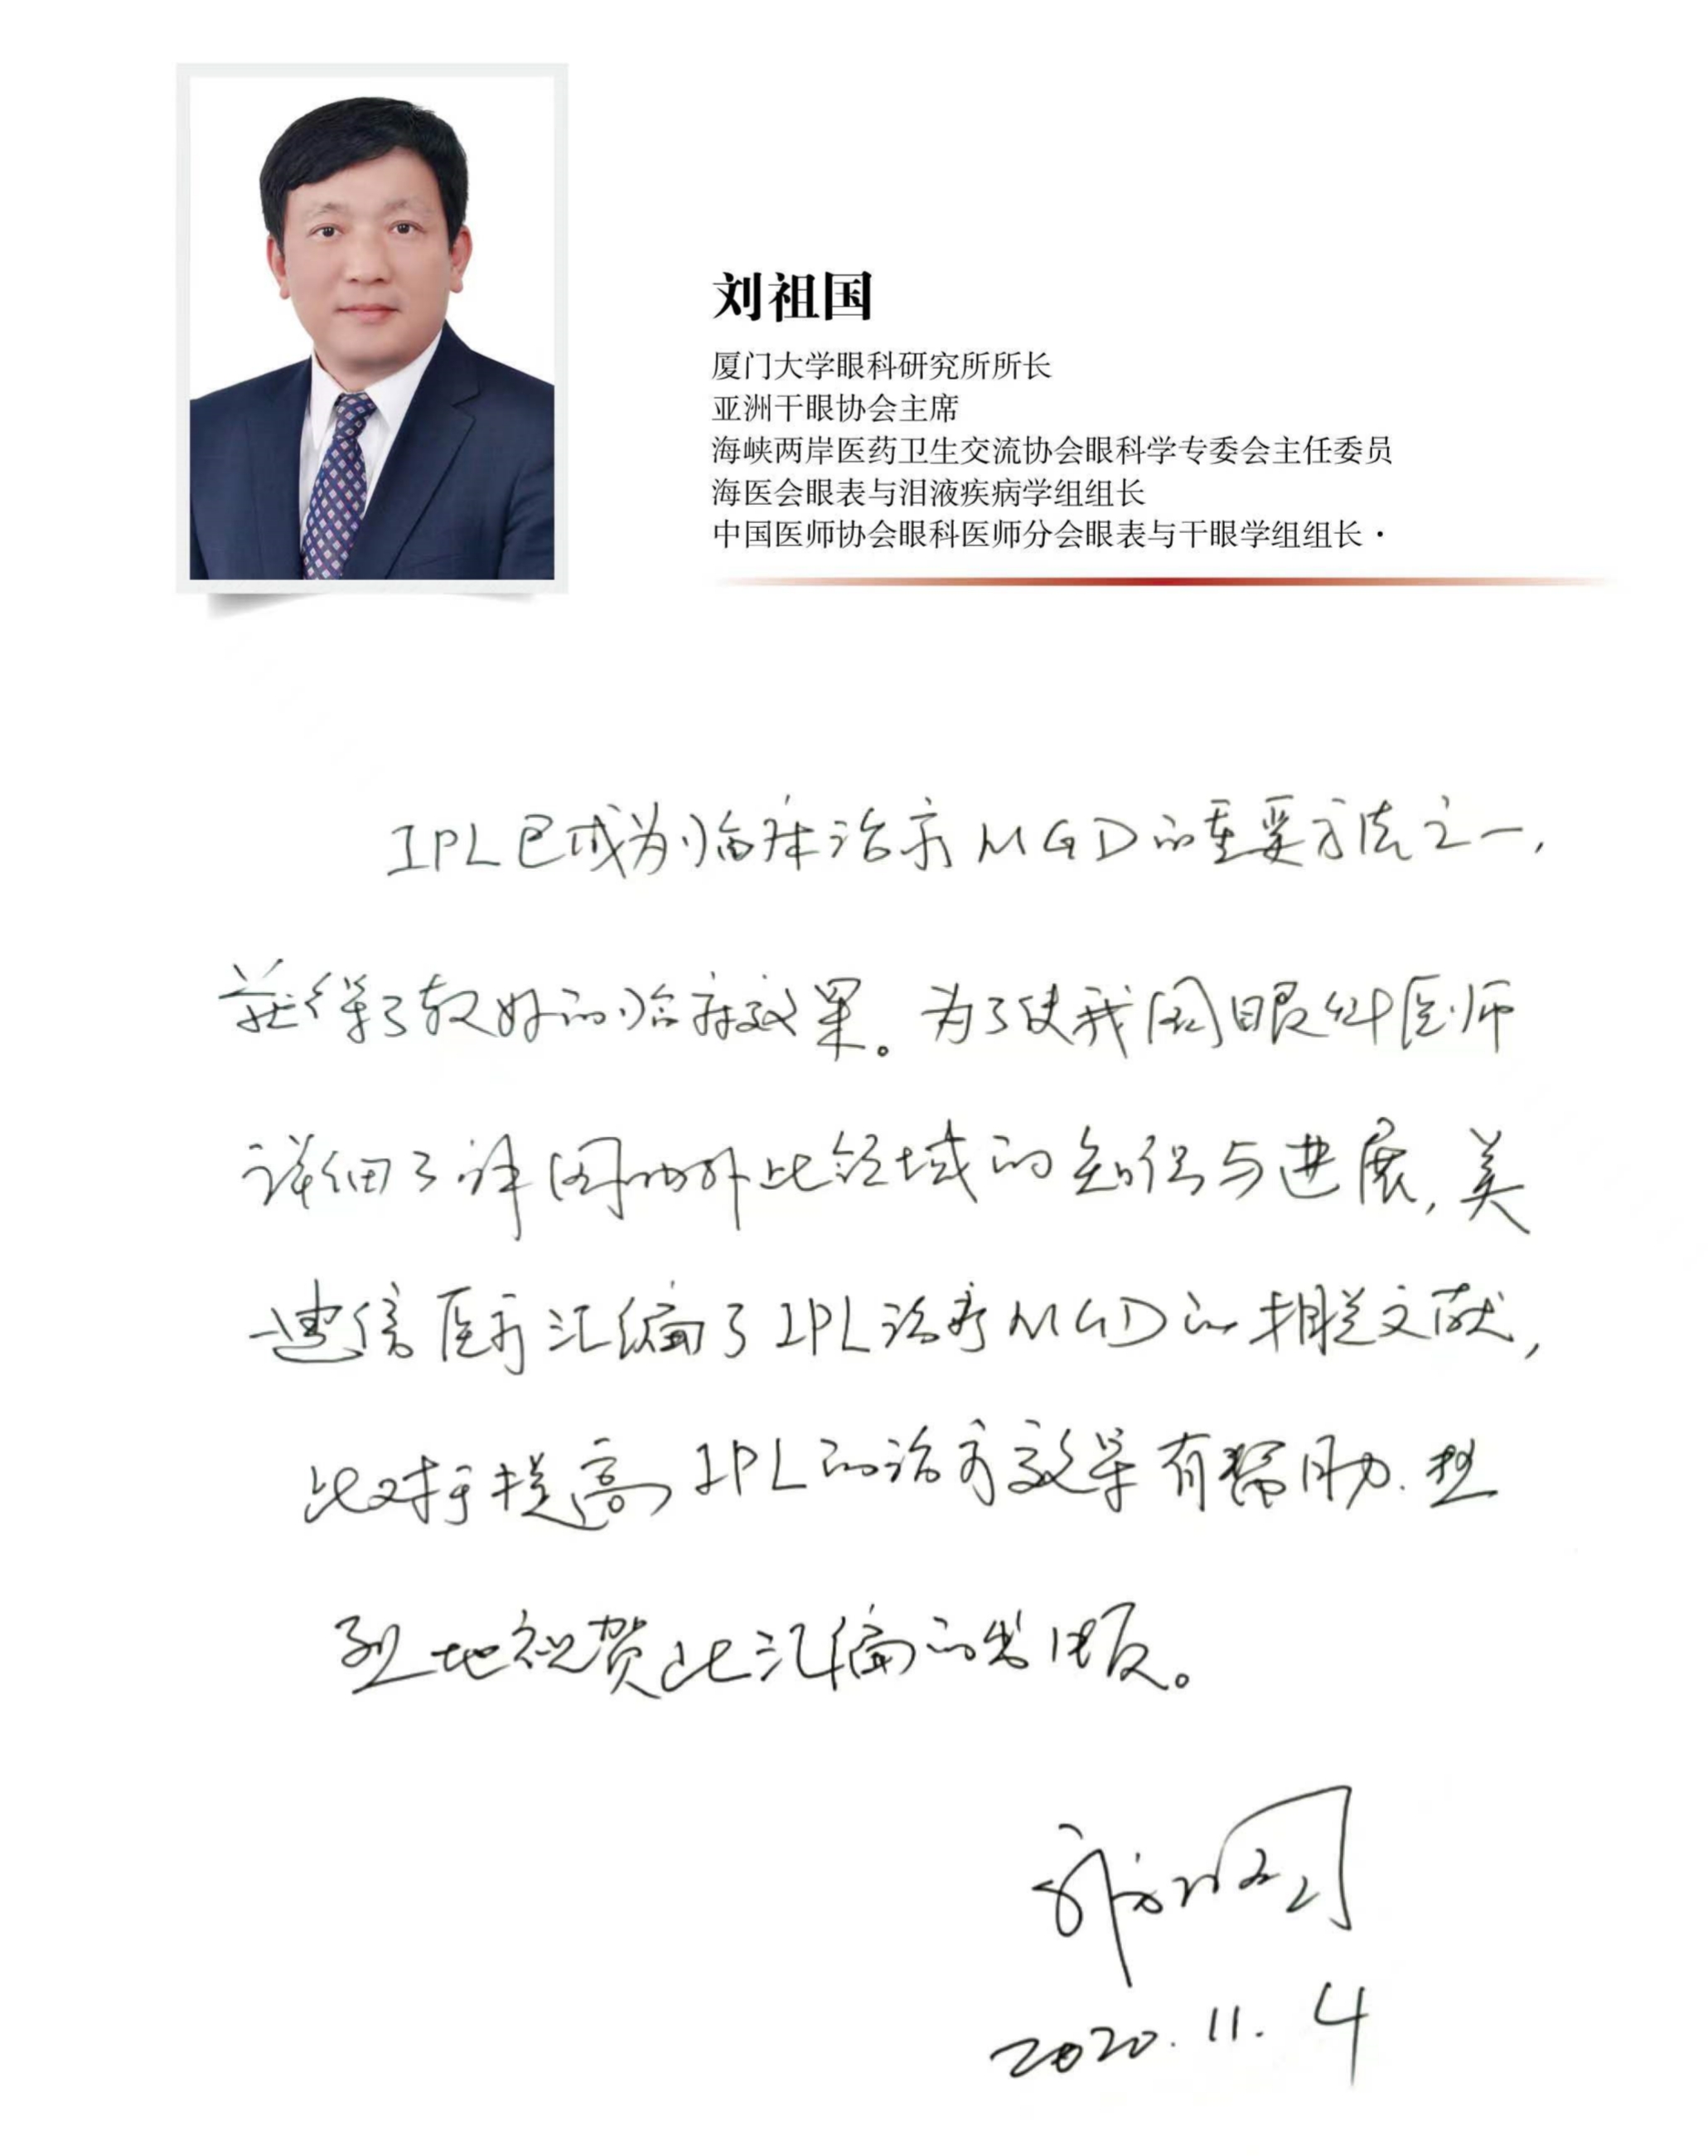 刘祖国
厦门大学眼科研究所所长
亚洲干眼协会主席
海峡两岸医药卫生交流协会眼科学专委会主任委员
海医会眼表与泪液疾病学组组长
中国医师协会眼科医师分会眼表与干眼学组组长·
IPL已成为临床治疗MGD的重要方法之一,
获得了较好的治疗效果。为了使我国眼科医师
详细了解国内外此领域的知识与进展,美
迪信医疗汇编了IPL治疗MGD的相关文献,
此对于提高IPL的治疗效果有帮助.热
烈地祝贺此汇编的出版。
刘祖国
2020.11.4